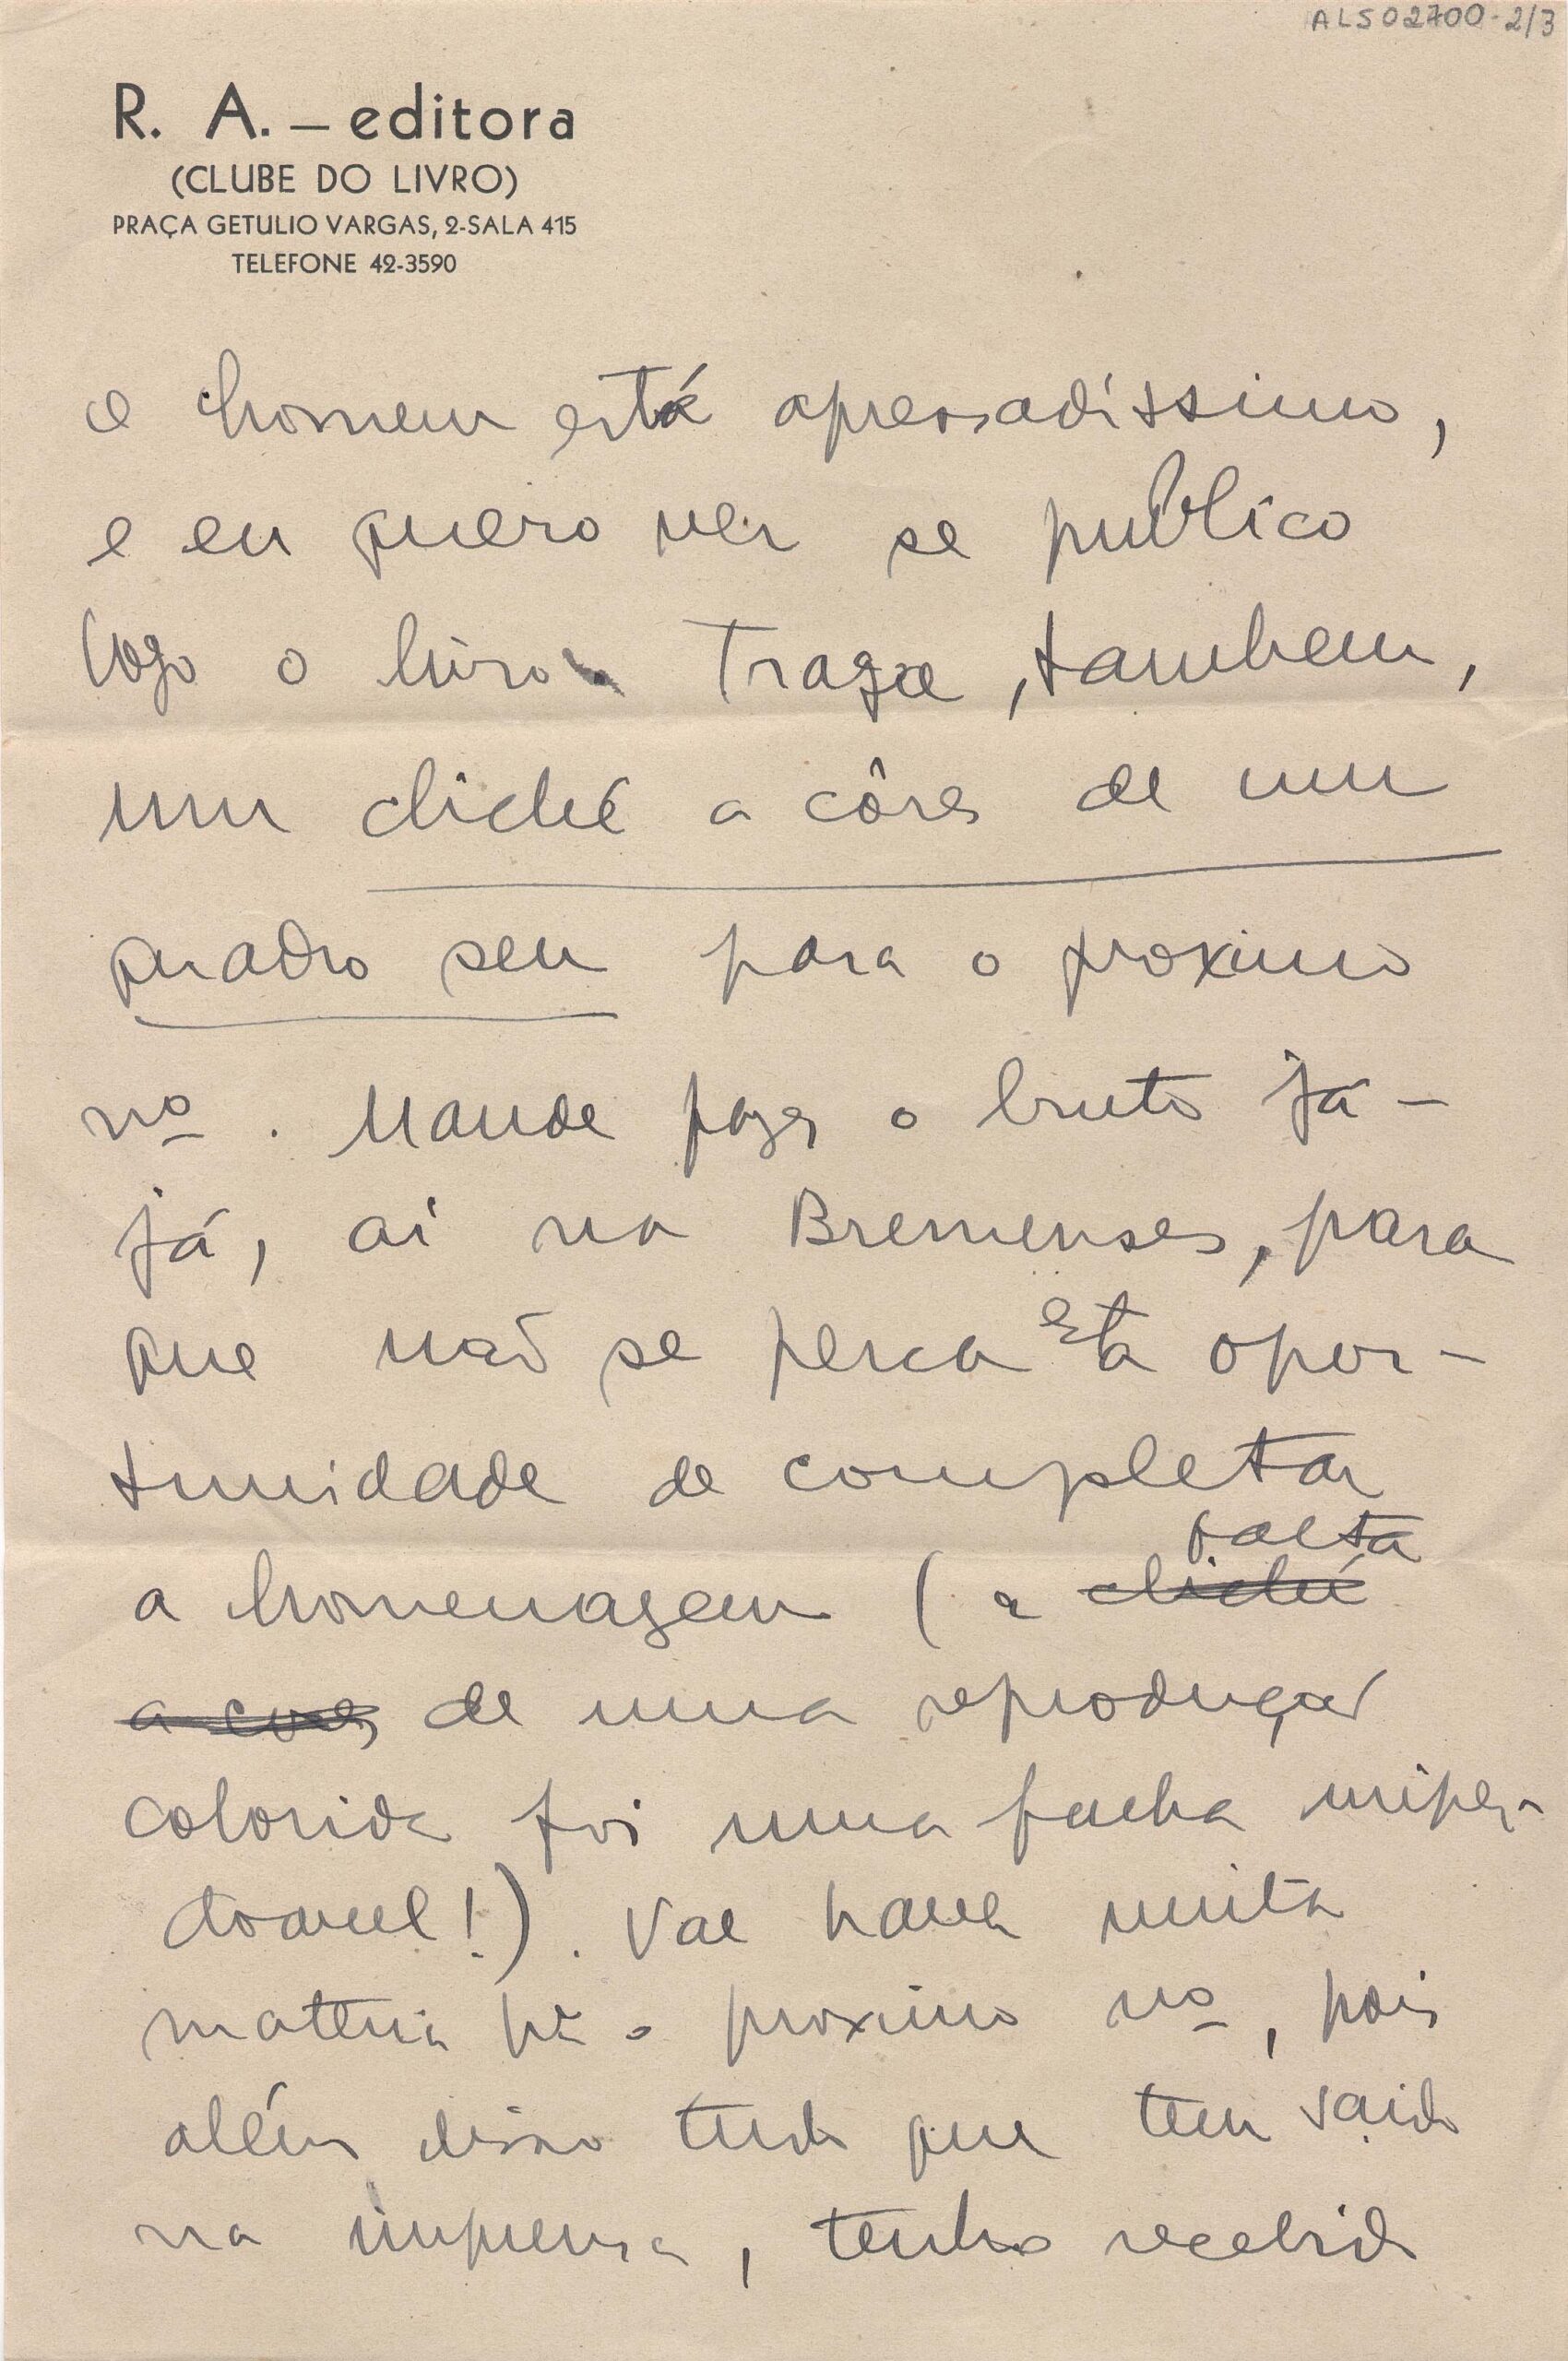 ALS02700-2/3
R. A. — editora
(CLUBE DO LIVRO)
PRAÇA GETULIO VARGAS, 2-SALA 415
TELEFONE 42-3590
o homem está apressadíssimo,
e eu quero ver se publico
logo o livro. Traga, tambem,
um cliché a côres de um
quadro seu para o proximo
nº. Mande fazer o bruto já-
já, aí na Bremenses, para
que não se perca esta opor-
tunidade de completar
a homenagem (a falta
cliché
a cores de uma reprodução
colorida foi uma falha imper-
doavel!). Vae haver muita
materia pª o proximo nº, pois
além disso tudo que tem saido
na imprensa, tenho recebido